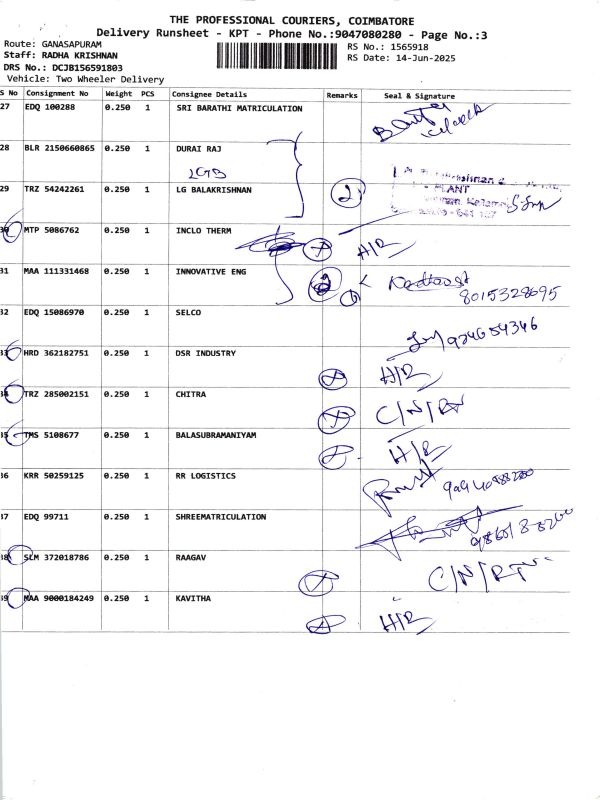 THE PROFESSIONAL COURIERS, COIMBATORE
Delivery Runsheet - KPT - Phone No.:9047080280 - Page No.:3
Route: GANASAPURAM RS No.: 1565918
Staff: RADHA KRISHNAN RS Date: 14-Jun-2025
DRS No.: DCJB156591803
Vehicle: Two Wheeler Delivery
S No Consignment No Weight PCS Consignee Details Remarks Seal & Signature
27 EDQ 100288 0.250 1 SRI BARATHI MATRICULATION
28 BLR 2150660865 0.250 1 DURAI RAJ
LGB
29 TRZ 54242261 0.250 1 LG BALAKRISHNAN 2
PLANT
30 MTP 5086762 0.250 1 INCLO THERM H/R
31 MAA 111331468 0.250 1 INNOVATIVE ENG 2
8015328695
32 EDQ 15086970 0.250 1 SELCO
33 HRD 362182751 0.250 1 DSR INDUSTRY H/R
34 TRZ 285002151 0.250 1 CHITRA C/N/R
35 TMS 5108677 0.250 1 BALASUBRAMANIYAM H/R
36 KRR 50259125 0.250 1 RR LOGISTICS
37 EDQ 99711 0.250 1 SHREEMATRICULATION
38 SLM 372018786 0.250 1 RAAGAV C/N/R
39 MAA 9000184249 0.250 1 KAVITHA H/R